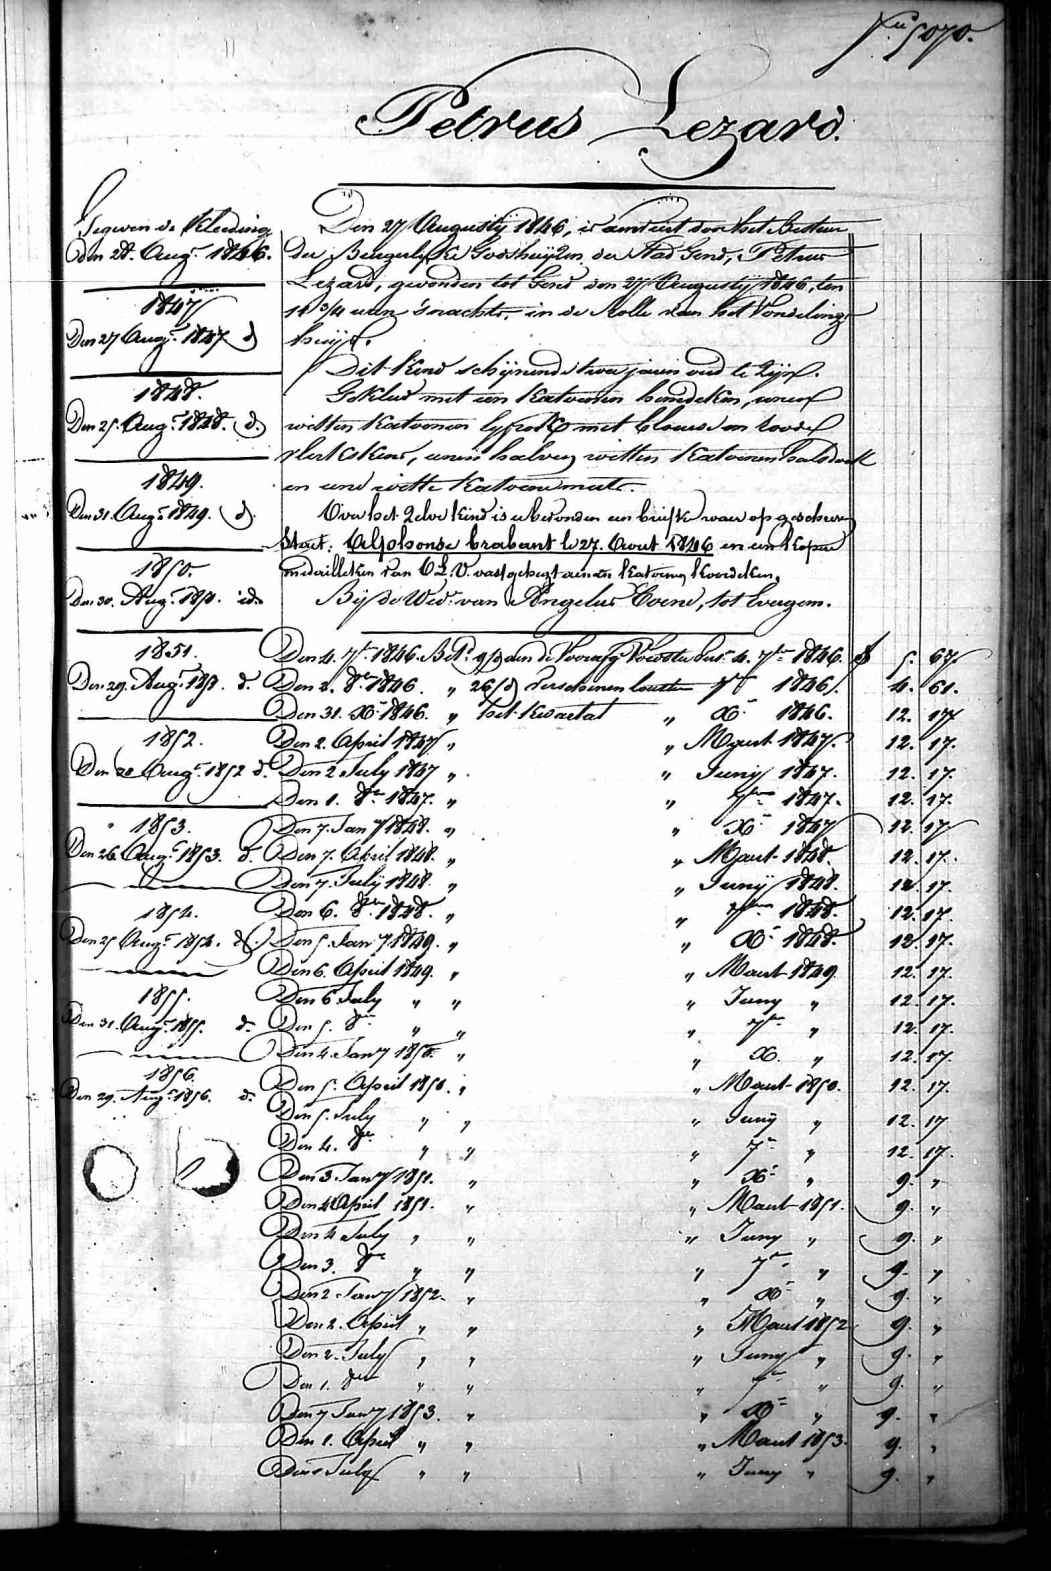 Nu 5070.
Petrus Lezard.
Gegeven de Kleeding
Den 28. Augt. 1846.
1847
Den 27 Augt. 1847 d
1848.
Den 25. Augt. 1848. d.
1849.
Den 31. Augt. 1849. d.
1850.
Den 30. Augt. 1850. id.
1851.
Den 29. Augt. 1851. d.
1852.
Den 20 Augt. 1852 d.
1853.
Den 26. Augt. 1853. d.
1854.
Den 25 Augt. 1854. d.
1855.
Den 31. Augt. 1855. d.
1856.
Den 29. Augt. 1856. d.
Den 27 Augustij 1846, is aenveerd door het Bestuer
der Burgerlyke Godshuijzen der Stad Gend, Petrus
Lezard, gevonden tot Gend den 27 Augustij 1846, ten
11 3/4 uren 's nachts, in de Rolle van het Vondeling
huijs.
Dit kind schijnende twee jaren oud te zijn.
Gekleed met een katoenen hemdeken, eenen
witten katoenen lyfrok met blauwe en roode
vlekskens, eenen halven witten katoenen halsdoek
en eene witte katoene muts.
Over het zelve kind is er bevonden een briefke waer op geschreven
staet: Alphonse brabant le 27. Aout 1846 en een koper
medailleken van O.L.V. vast gehegt aen een katoenen koordeken.
Bij de Wed. van Angelus Coene, tot Evergem.
Den 4. 7br 1846. Bet. 9/9 aen de Voorafg Voedster tot 4. 7br 1846. f 5. 67
Den 2. 8br 1846. " 26/d verschenen loutten 7br 1846. 4. 61.
Den 31. Xr 1846. " het kwartal " Xr 1846. 12. 17
Den 2. April 1847 " " Maert 1847. 12. 17.
Den 2 July 1847 " " Junij 1847. 12. 17.
Den 1. 8br 1847. " " 7br 1847. 12. 17.
Den 7. Jany 1848. " " Xr 1847 12. 17
Den 7. April 1848. " " Maert 1848. 12. 17.
Den 7. July 1848. " " Junij 1848. 12. 17.
Den 6. 8br 1848. " " 7br 1848. 12. 17.
Den 5. Jany 1849. " " Xr 1848. 12. 17.
Den 6. April 1849. " " Maert 1849. 12. 17.
Den 6 July " " " Juny " 12. 17.
Den 5. 8br " " " 7br " 12. 17.
Den 4. Jany 1850. " " X. " 12. 17
Den 5. April 1850. " " Maert 1850. 12. 17.
Den 5. July " " " Junij " 12. 17
Den 4. 8br " " " 7br " 12. 17.
Den 3. Jany 1851. " " Xr " 9. "
Den 4 April 1851. " " Maert 1851. 9. "
Den 4 July " " " Juny " 9. "
Den 3. 8br " " " 7br " 9. "
Den 2 Jany 1852. " " Xr " 9. "
Den 2. April " " " Maert 1852 9. "
Den 2. July " " " Juny " 9. "
Den 1. 8br " " " 7br " 9. "
Den 7 Jany 1853. " " Xr " 9. "
Den 1. April " " " Maert 1853. 9. "
Den July " " " Juny " 9. "